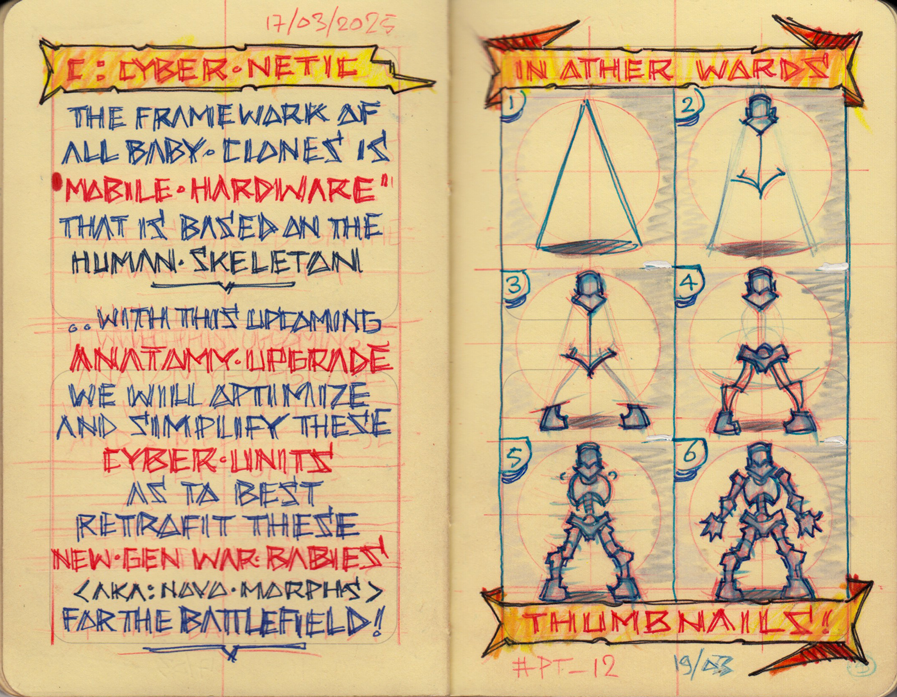 17/03/2025
C: CYBER·NETIC
THE FRAMEWORK OF
ALL BABY·CLONES IS
"MOBILE·HARDWARE"
THAT IS BASED ON THE
HUMAN·SKELETON
..WITH THIS UPCOMING
ANATOMY·UPGRADE
WE WILL OPTIMIZE
AND SIMPLIFY THESE
CYBER·UNITS
AS TO BEST
RETROFIT THESE
NEW·GEN WAR·BABIES
<AKA:NOVO·MORPHS>
FOR THE BATTLEFIELD!
IN OTHER WORDS
1
2
3
4
5
6
THUMBNAILS!
#PT_12
19/03